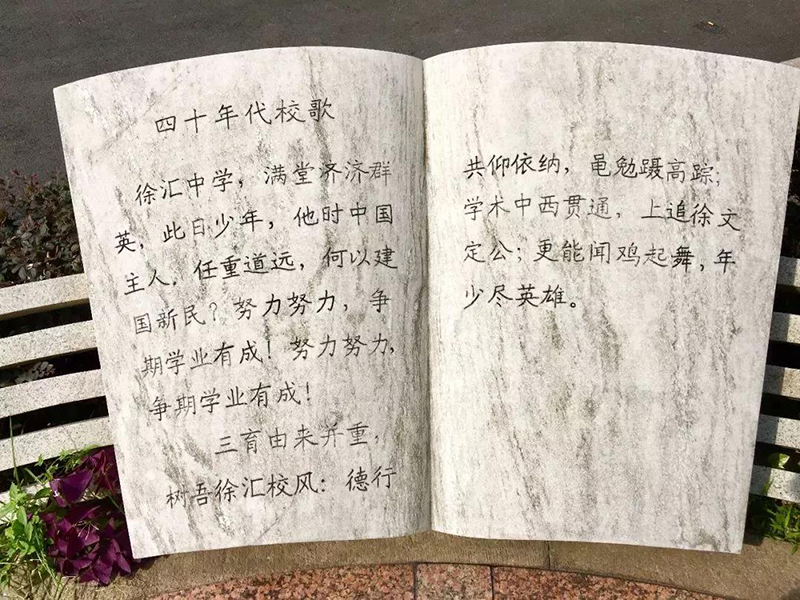 四十年代校歌
徐汇中学，满堂济济群
英，此日少年，他时中国
主人，任重道远，何以建
国新民？努力努力，争
期学业有成！努力努力，
争期学业有成！
三育由来并重，
树吾徐汇校风：德行
共仰依纳，黾勉蹑高踪；
学术中西贯通，上追徐文
定公；更能闻鸡起舞，年
少尽英雄。